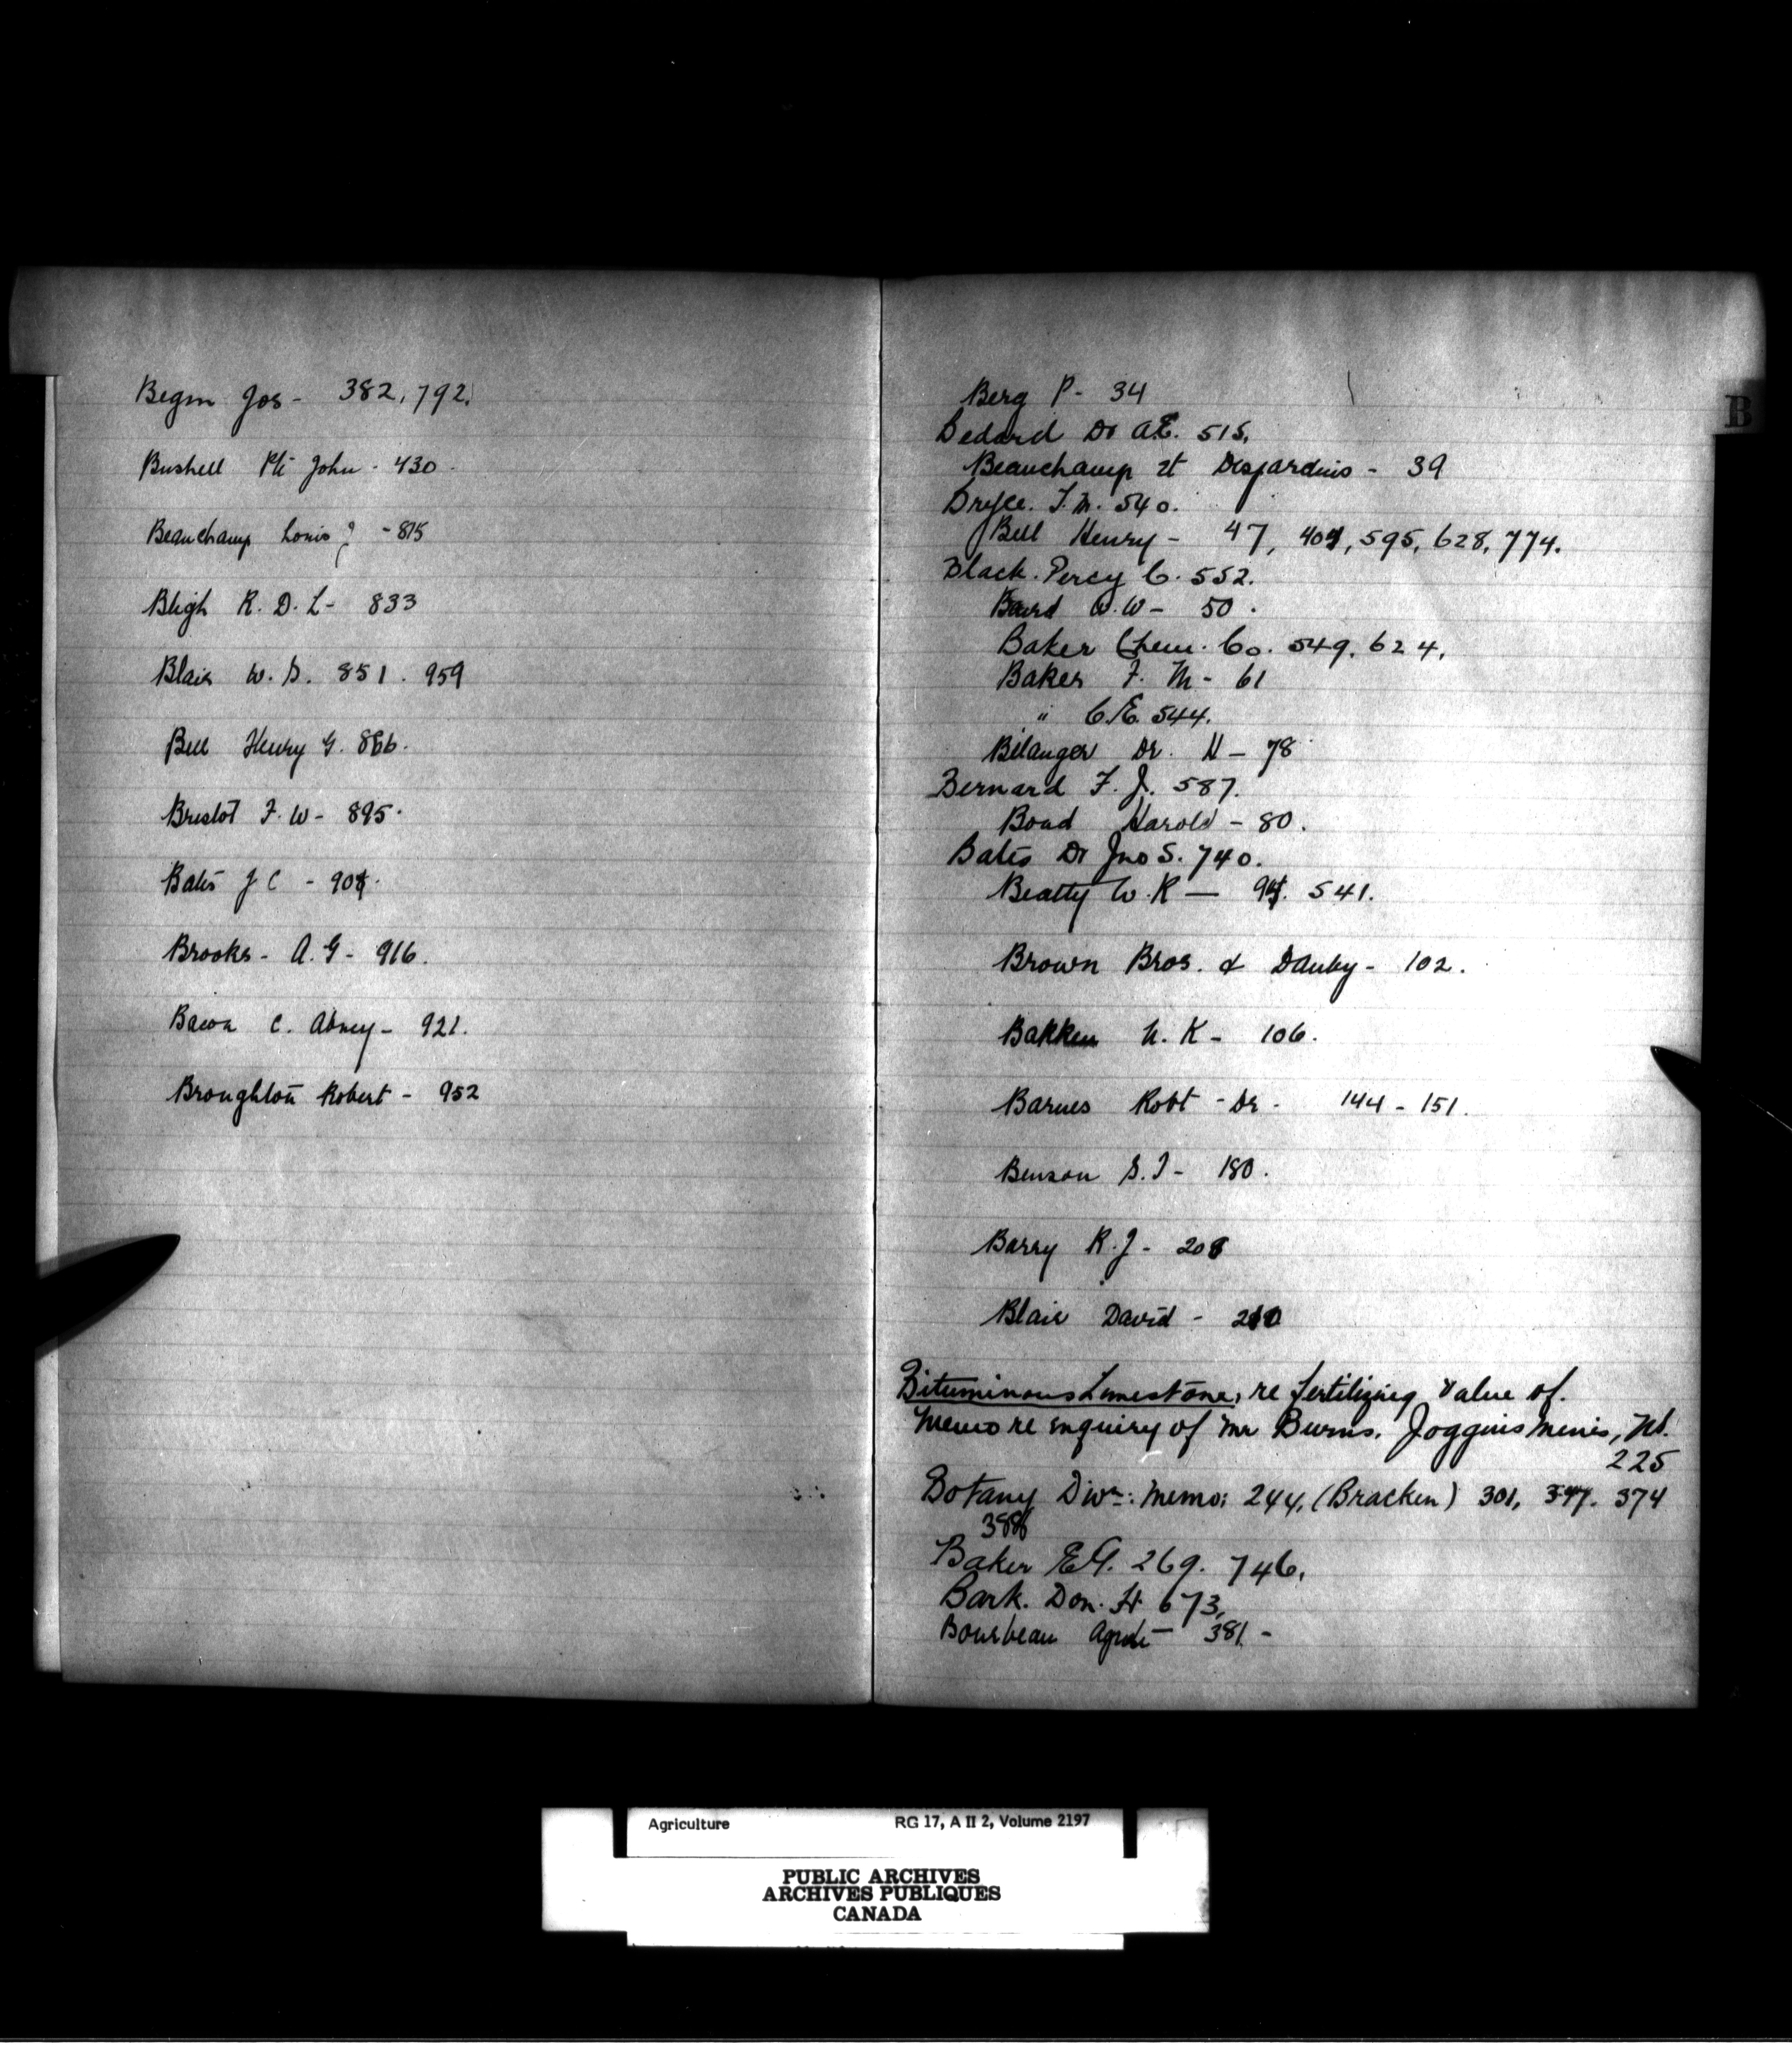 Begin Jos - 382, 792.
Bushell Pte John - 430 -
Beauchamp Louis J - 815
Bligh R. D. L - 833
Blair W. S. 851. 959
Bell Henry G. 866.
Bristol F. W - 895.
Bates J C - 904.
Brooks - A. G - 916.
Bacon C. Abney - 921.
Broughton Robert - 952
B
Berg P - 34
Bedard Dr A.E. 515.
Beauchamp et Desjardins - 39
Bryce. F. M. 540.
Bell Henry - 47, 404, 595, 628, 774.
Black. Percy C. 552.
Baird W. W - 50.
Baker Chem. Co. 549. 624.
Baker F. M - 61
" C. E. 544.
Bélanger Dr. H - 78
Bernard F. J. 587.
Boad Harold - 80.
Bates Dr Jno S. 740.
Beatty W. R — 541.
Brown Bros. & Danby - 102.
Bakken N. K - 106.
Barnes Robt - Dr - 144 - 151.
Benson S. I - 180.
Barry R. J - 208
Blair David - 210
Bituminous Limestone, re fertilizing value of.
Memo re enquiry of Mr Burns. Joggins Mines, NS.
225
Botany Divn: Memo: 244, (Bracken) 301, 347. 374
386
Baker E.G. 269. 746.
Bark. Don. H. 673.
Bourbeau 381 -
Agriculture RG 17, A II 2, Volume 2197
PUBLIC ARCHIVES
ARCHIVES PUBLIQUES
CANADA